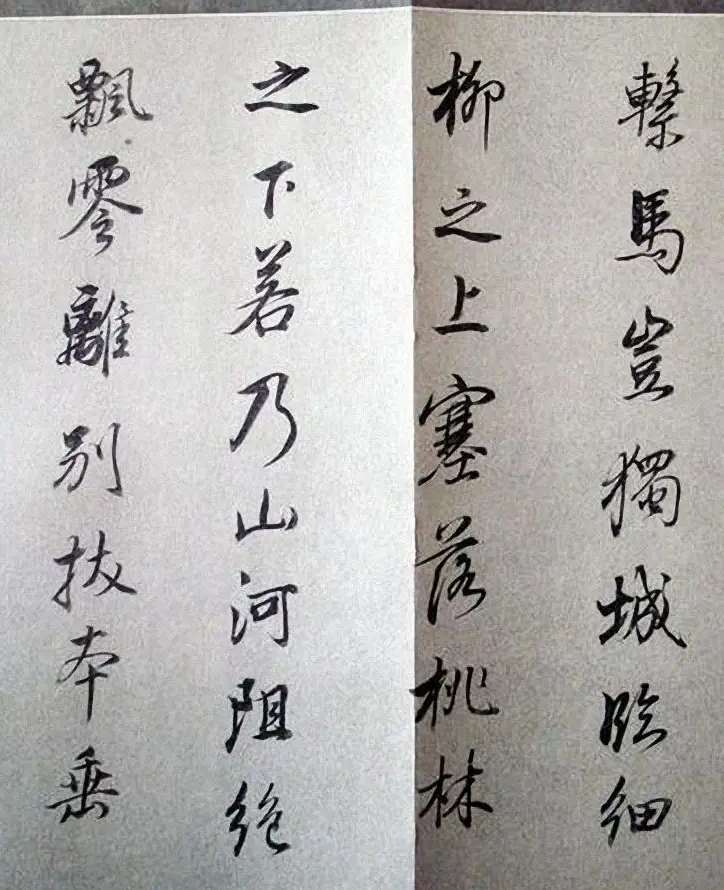 繫馬豈獨城臨細
柳之上塞落桃林
之下若乃山河阻絕
飄零離別拔本垂